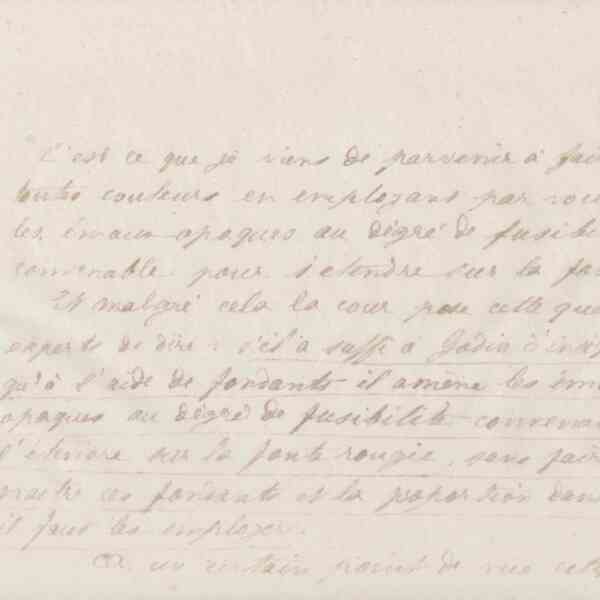 C'est ce que je viens de parvenir à fai
toutes couleurs en employant par vou
les émaux opaques au dégré de fusibi
convenable pour s'etendre sur la fo
Et malgré cela la cour pose cette que
experts de dire : s'il a suffi à Godin d'in
qu'à l'aide de fondants il amène les ém
opaques au dégré de fusibilité convena
s'étendre sur la fonte rougie, sans fair
naitre ces fondants et la poportion dan
il faut les employer.
un certain point de vue cett